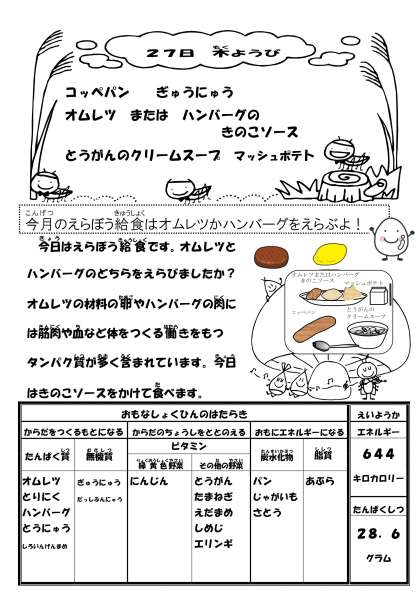 27日　木ようび
コッペパン　ぎゅうにゅう
オムレツ　または　ハンバーグの
きのこソース
とうがんのクリームスープ　マッシュポテト
今月のえらぼう給食はオムレツかハンバーグをえらぶよ！
今日はえらぼう給食です。オムレツと
ハンバーグのどちらをえらびましたか？
オムレツの材料の卵やハンバーグの肉に
は筋肉や血など体をつくる働きをもつ
タンパク質が多く含まれています。今日
はきのこソースをかけて食べます。
オムレツまたはハンバーグ
きのこソース
マッシュポテト
コッペパン
とうがんの
クリームスープ
おもなしょくひんのはたらき
えいようか
からだをつくるもとになる　からだのちょうしをととのえる　おもにエネルギーになる
エネルギー
たんぱく質　無機質　ビタミン　炭水化物　脂質
緑黄色野菜　その他の野菜
644
キロカロリー
オムレツ　ぎゅうにゅう　にんじん　とうがん　パン　あぶら
とりにく　だっしふんにゅう　たまねぎ　じゃがいも
ハンバーグ　えだまめ　さとう
とうにゅう　しめじ
しろいんげんまめ　エリンギ
たんぱくしつ
28.6
グラム